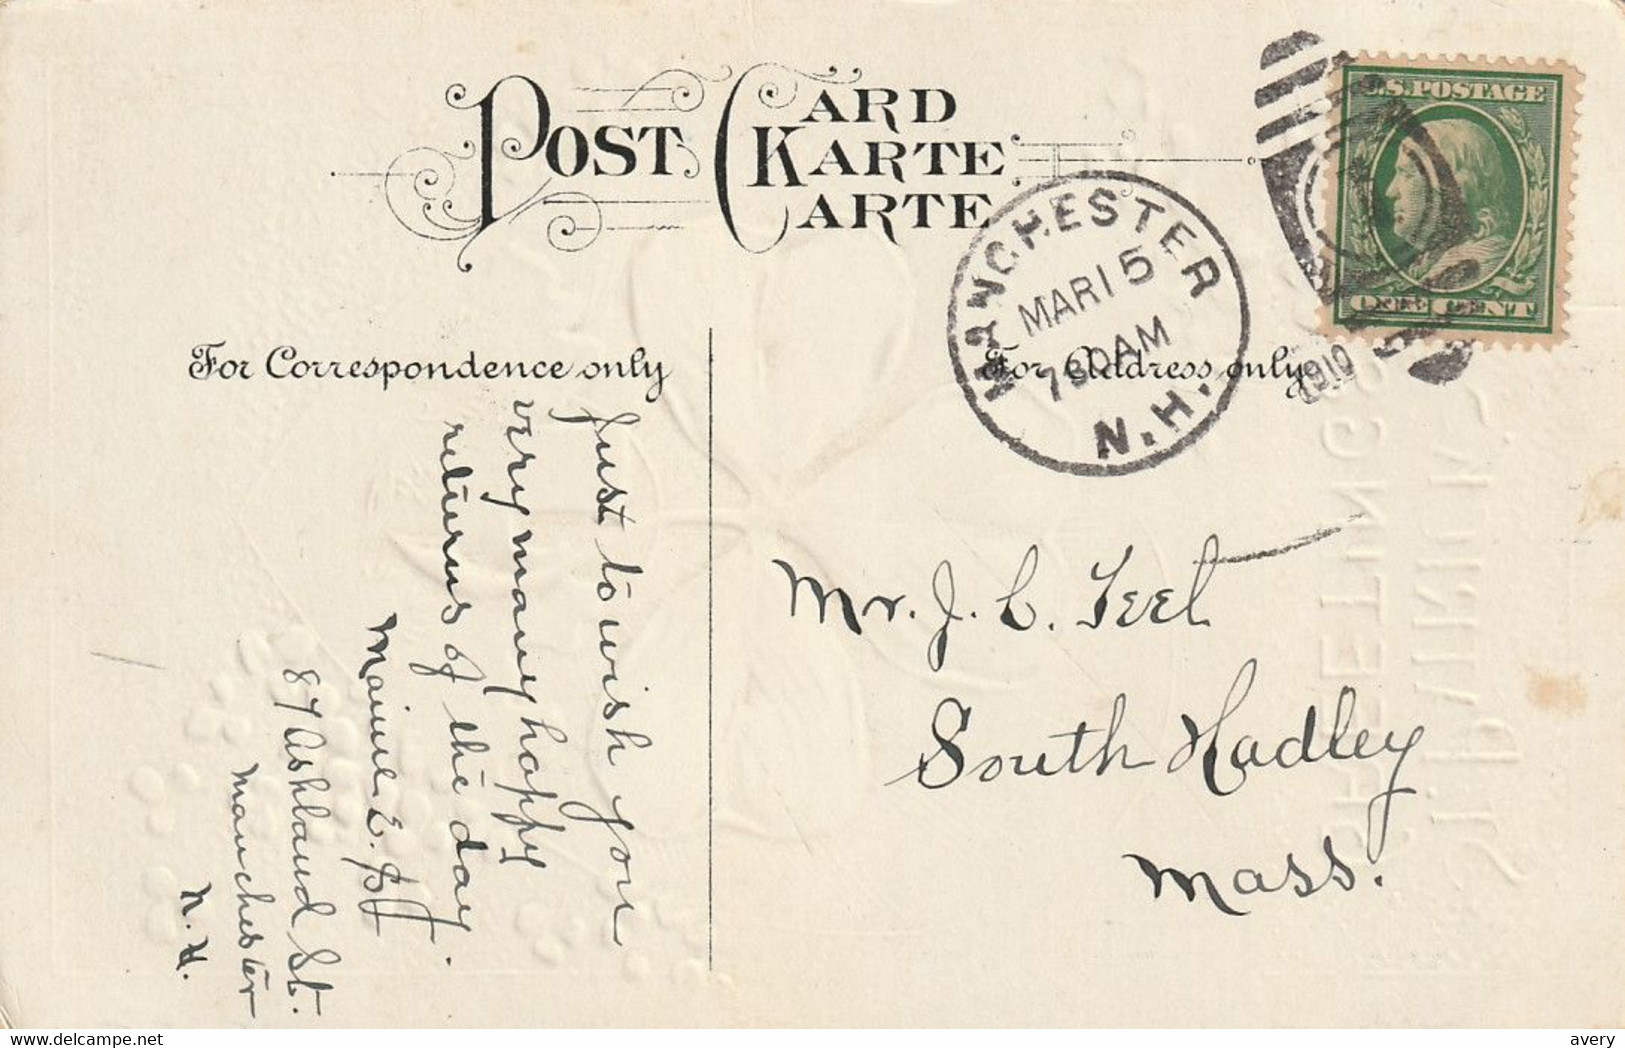 POST CARD
KARTE
CARTE
U.S. POSTAGE
ONE CENT
MANCHESTER
MAR 15
7 30 AM
N.H.
1910
For Correspondence only
For Address only
Just to wish you
very many happy
returns of the day.
E.
87 Ashland St.
Manchester
N. H.
Mr. J. C. Teel
South Hadley
Mass.
ST. PATRICK'S
GREETINGS
delcampe.net
avery